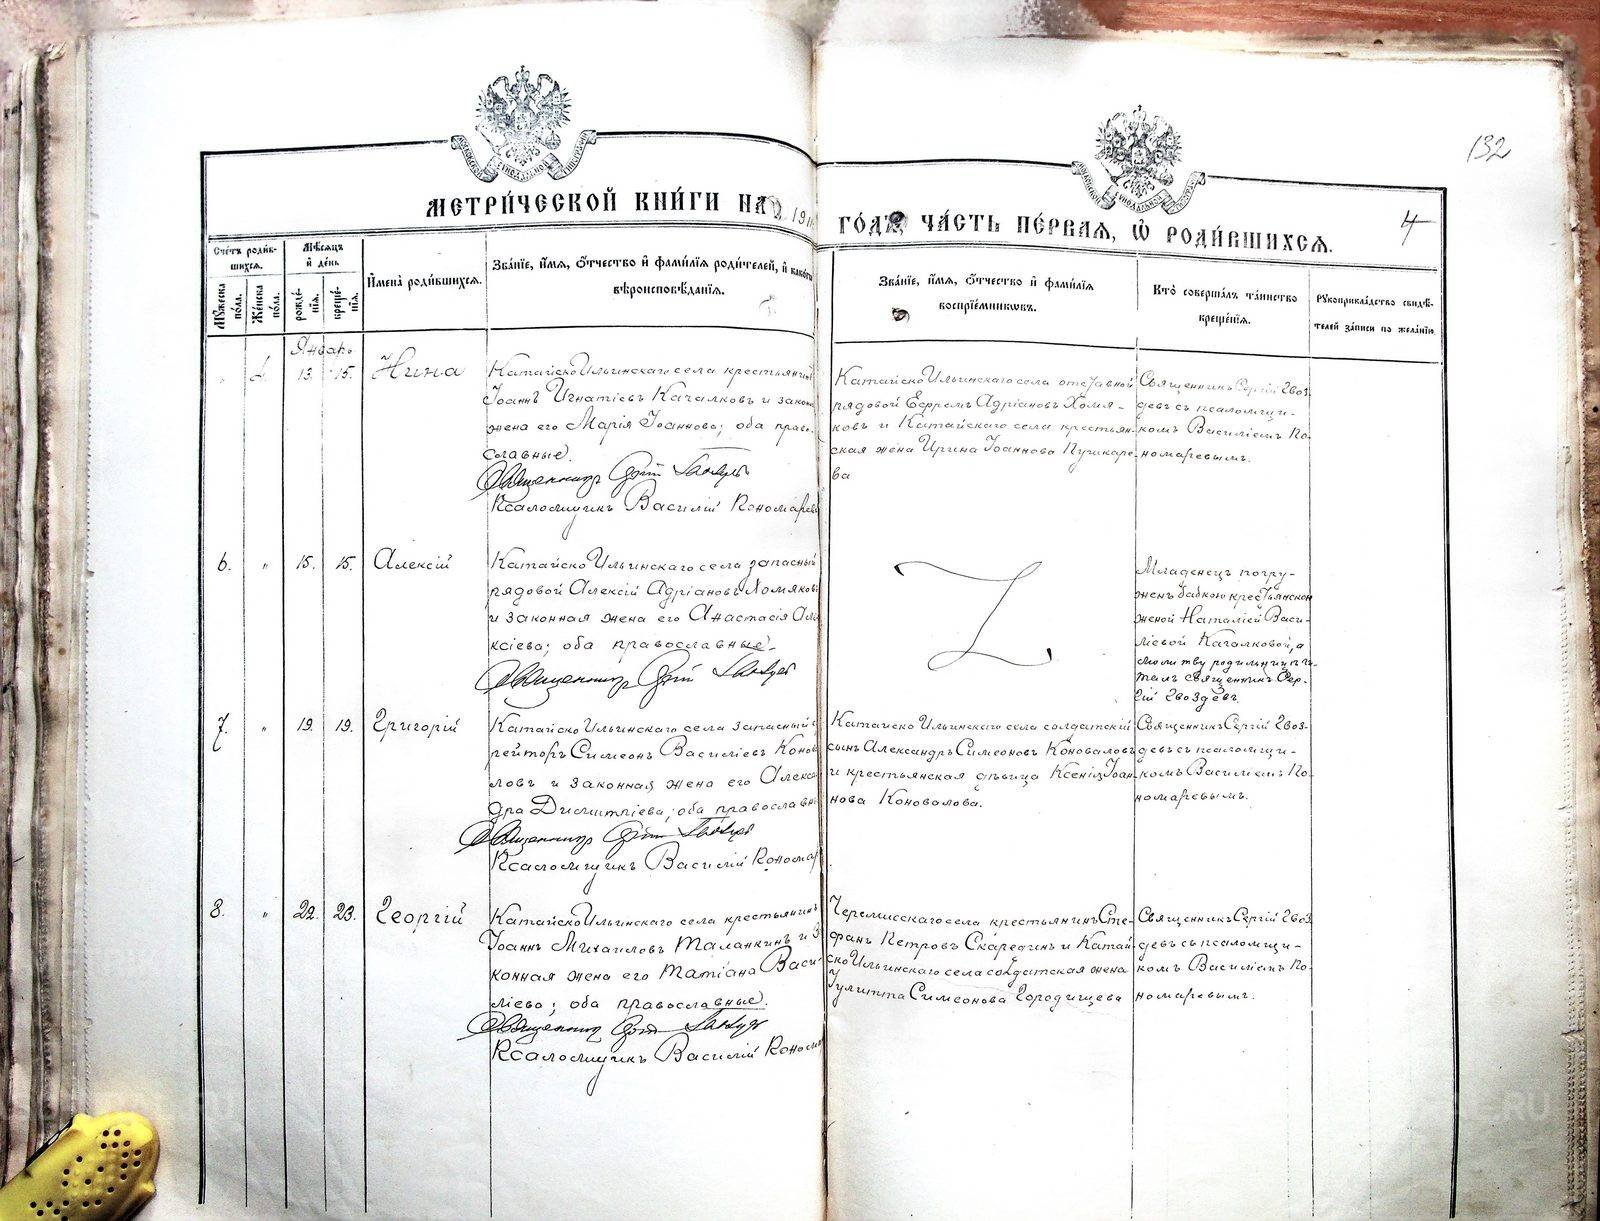 132
МЕТРИ́ЧЕСКОЙ КНИ́ГИ НА 191
ГО́ДЪ, ЧА́СТЬ ПЕ́РВАЯ, Ѡ҆ РОДИ́ВШИХСЯ.
4
Сче́тъ роди́в-
шихся.
Мꙋ́жеска
по́ла.
Же́нска
по́ла.
Мѣ́сяцъ
и҆ де́нь
рожде́-
нїя.
креще́-
нїя.
И҆мена̀ роди́вшихся.
Зва́нїе, и҆́мя, ѻ҆́тчество и҆ фами́лїя роди́телей, и҆ како́гѡ
вѣроисповѣ́данїя.
Зва́нїе, и҆́мя, ѻ҆́тчество и҆ фами́лїя
воспрїе́мникѡвъ.
Кто̀ соверша́лъ та́инство
креще́нїя.
Рꙋкоприкла́дство свидѣ́-
телей за́писи по жела́нїю.
Январь
" 13. 15. Нина
Катайско Ильинскаго села крестьянинъ
Іоаннъ Игнатіевъ Качалковъ и закон
жена его Марія Іоаннова; оба право-
славные.
Священникъ Сергій Гвоздевъ
Псаломщикъ Василій Пономаревъ
Катайско Ильинскаго села отставной
рядовой Ефремъ Адріановъ Хомя-
ковъ и Катайскаго села крестьян-
ская жена Ирина Іоаннова Пушкаре-
ва
Священникъ Сергій Гвоз-
девъ съ псаломщи-
комъ Василіемъ По-
номаревымъ.
6. " 15. 15. Алексій
Катайско Ильинскаго села запасный
рядовой Алексій Адріановъ Хомяковъ
и законная жена его Анастасія Але
ксіева; оба православные.
Священникъ Сергій Гвоздевъ
Младенецъ погру-
женъ бабкою крестьянской
женой Наталіей Васи-
ліевой Качалковой, а
молитву родильницы чи-
талъ священникъ Сер-
гій Гвоздевъ.
7. " 19. 19. Григорій
Катайско Ильинскаго села запасный е
рейторъ Симеонъ Василіевъ Конова
ловъ и законная жена его Алекса
дра Димитріева; оба православны
Священникъ Сергій Гвоздевъ
Псаломщикъ Василій Пономар
Катайско Ильинскаго села солдатскій
сынъ Александръ Симеоновъ Коноваловъ
и крестьянская дѣвица Ксенія Іоан-
нова Коновалова.
Священникъ Сергій Гвоз-
девъ съ псаломщи-
комъ Василіемъ По-
номаревымъ.
8. " 22. 23. Георгій
Катайско Ильинскаго села крестьянинъ
Іоаннъ Михаиловъ Таланкинъ и за
конная жена его Татіана Васи-
ліева; оба православные.
Священникъ Сергій Гвоздевъ
Псаломщикъ Василій Понома
Черемисскаго села крестьянинъ Сте-
фанъ Петровъ Скаредихъ и Катай-
ско Ильинскаго села солдатская жена
Іулитта Симеонова Городищева
Священникъ Сергій Гвоз
девъ съ псаломщи-
комъ Василіемъ По-
номаревымъ.